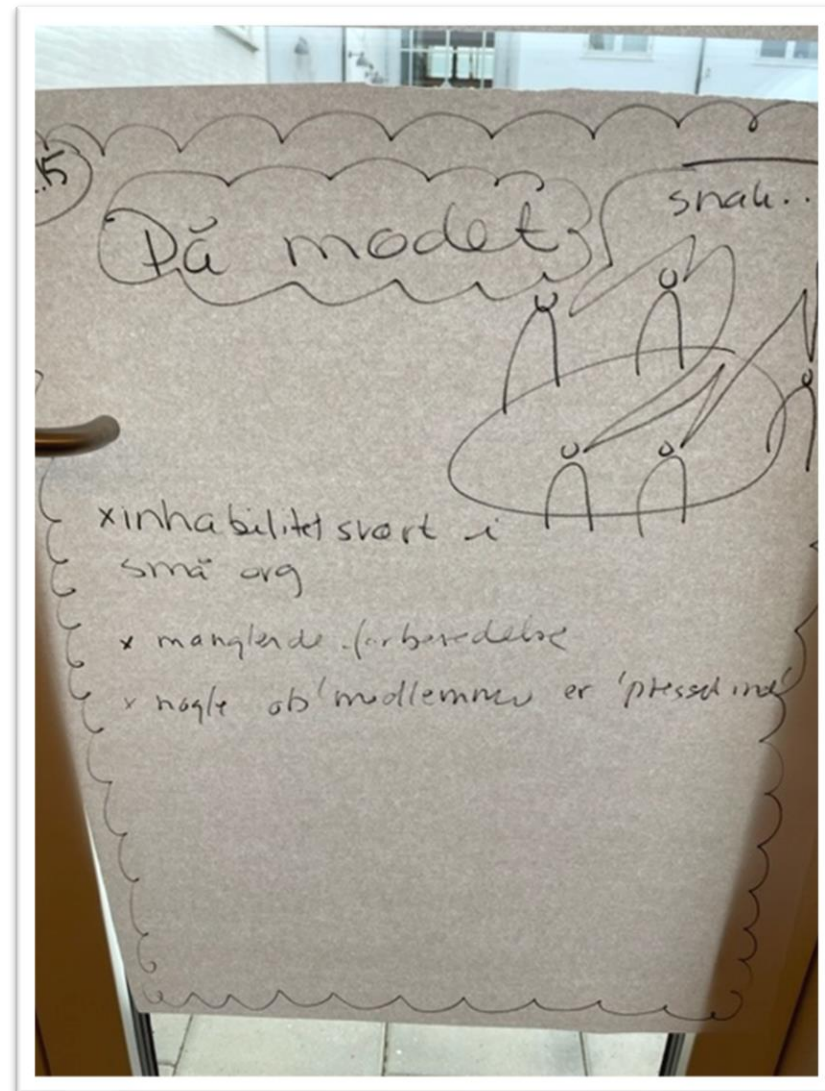 På mødet
snak..
x inhabilitet svært i
små org
x manglende forberedelse
x nogle medlemmer er 'presset ind'